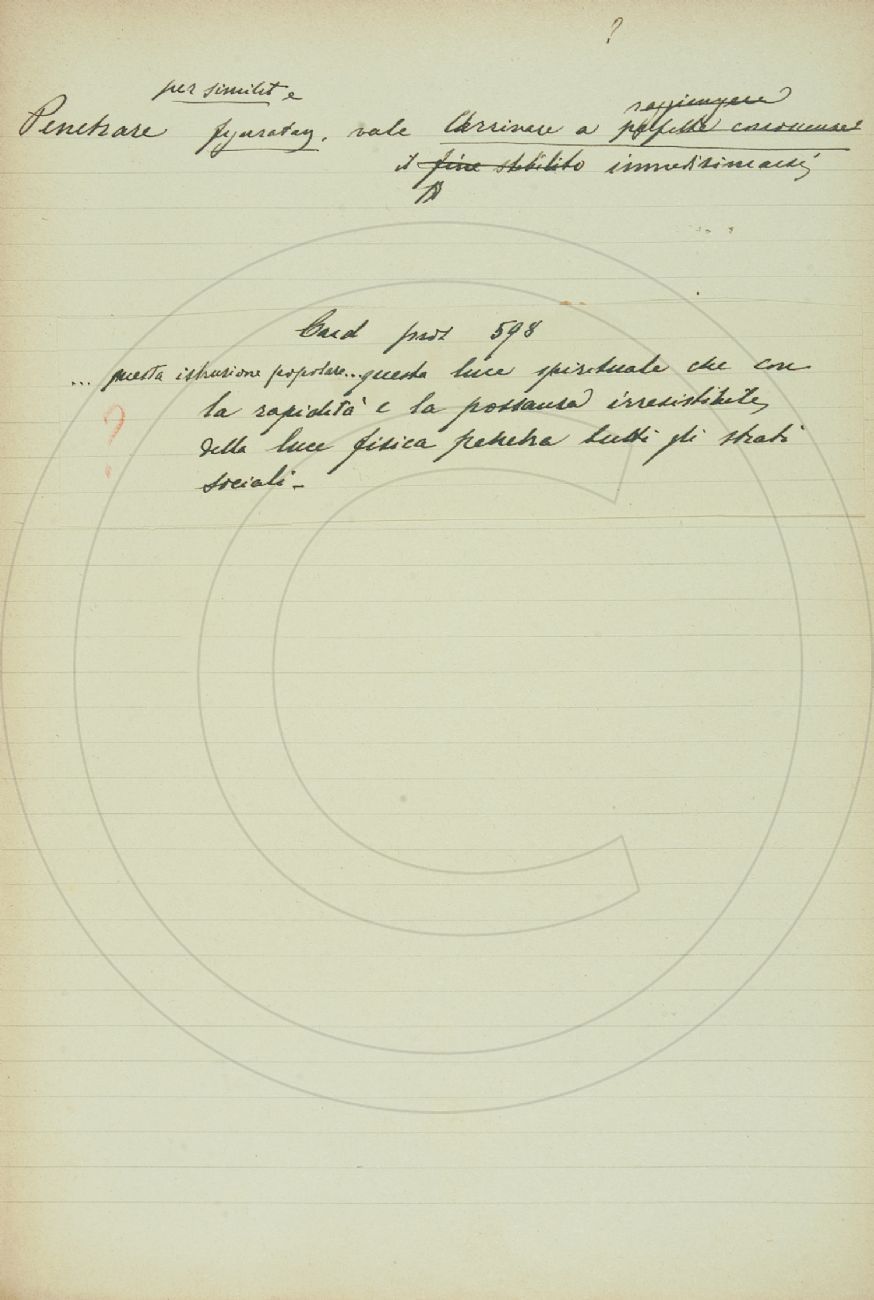 ?
per similit e
Penetrare figuratam. vale Arrivare a raggiungere perfetta conoscenza
il fine stabilito immedesimarsi
Card pros 598
... questa istruzione popolare... questa luce spirituale che con
la rapidità e la possanza irresistibile
della luce fisica penetra tutti gli strati
?
sociali -